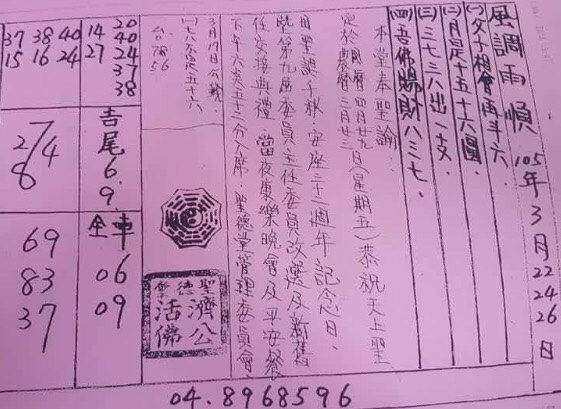 風調雨順 105年3月22 24 26日
(一)父子相會再斗六.
(二)月是十五十六圓.
(三)三七三八出一支.
(四)吾佛賜財八三七.
本堂奉聖諭.
定於國曆四月廿九日(星期五)恭祝天上聖
農曆三月廿三
母聖誕千秋.安座三十二週年記念日.
暨第九屆委員主任委員改選及新舊
任交接典禮.當夜康樂晚會及平安餐
下午六點五十二分入席.聖德堂管理委員會
聖德堂
濟公
活佛
20
40
24
37
38
14
27
40
24
38
16
37
15
吉尾6.9.
2/4
8
全車
06
09
69
83
37
04.8968596